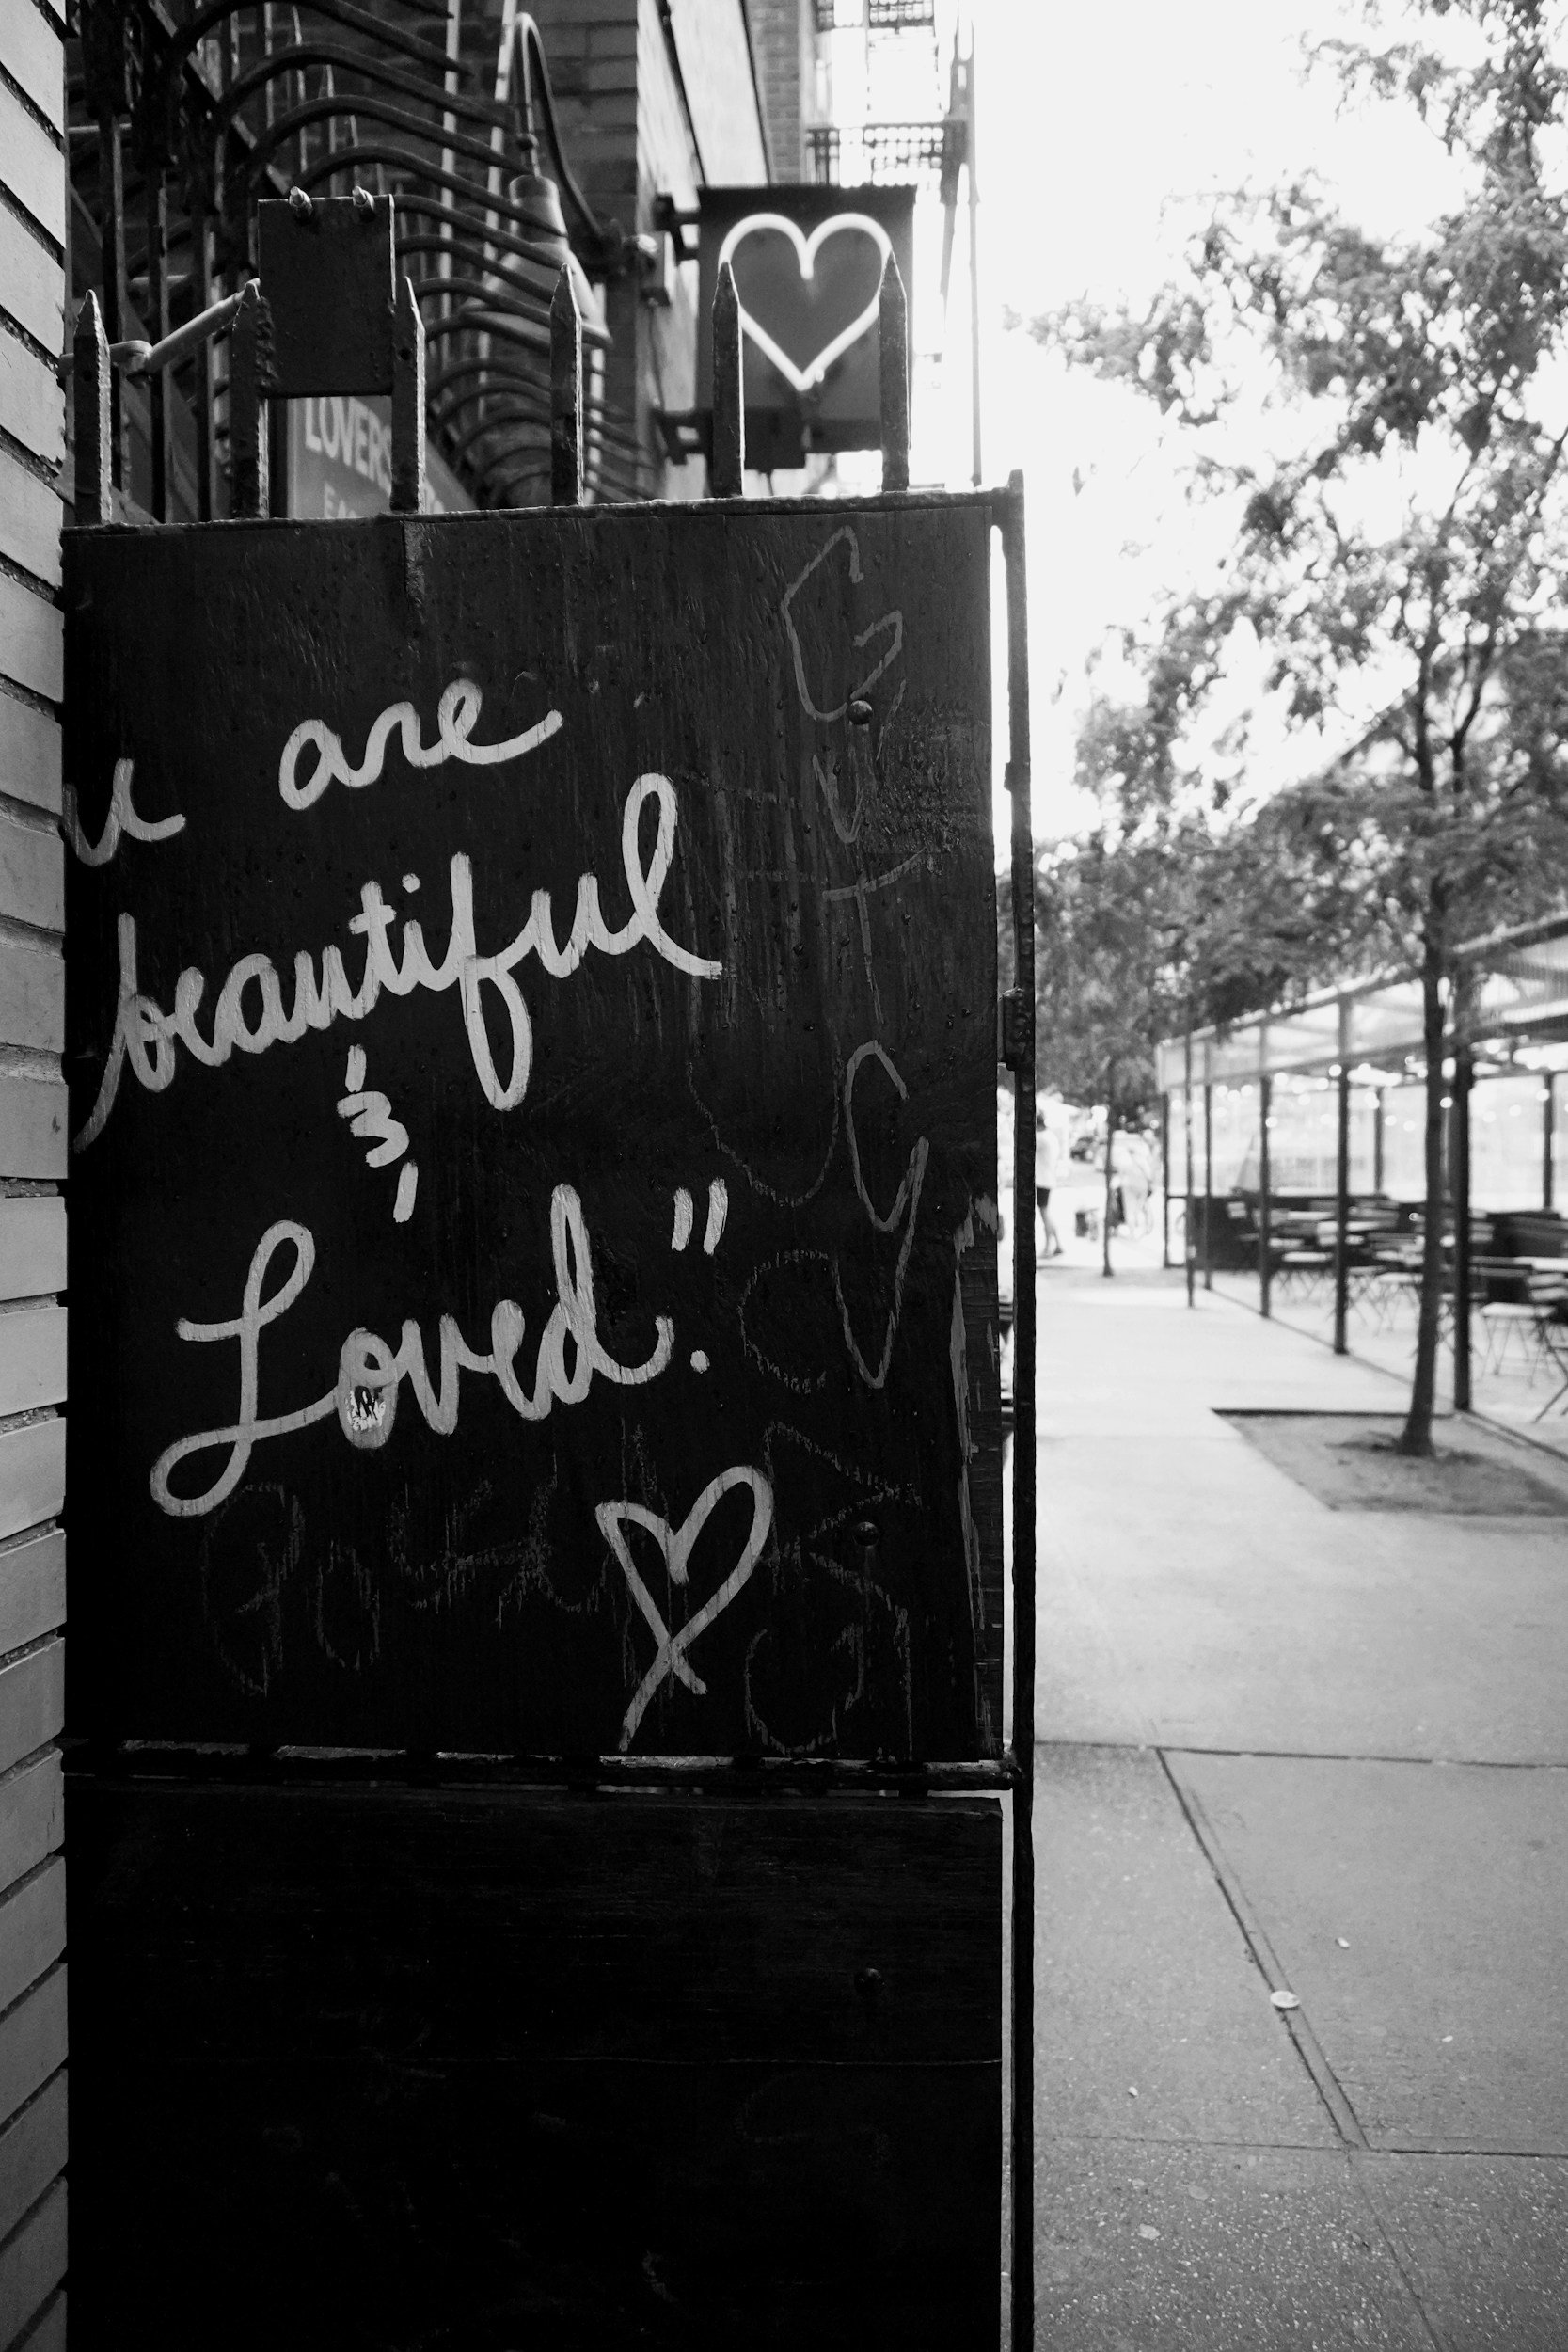 LOVERS
u are
beautiful
&
Loved."